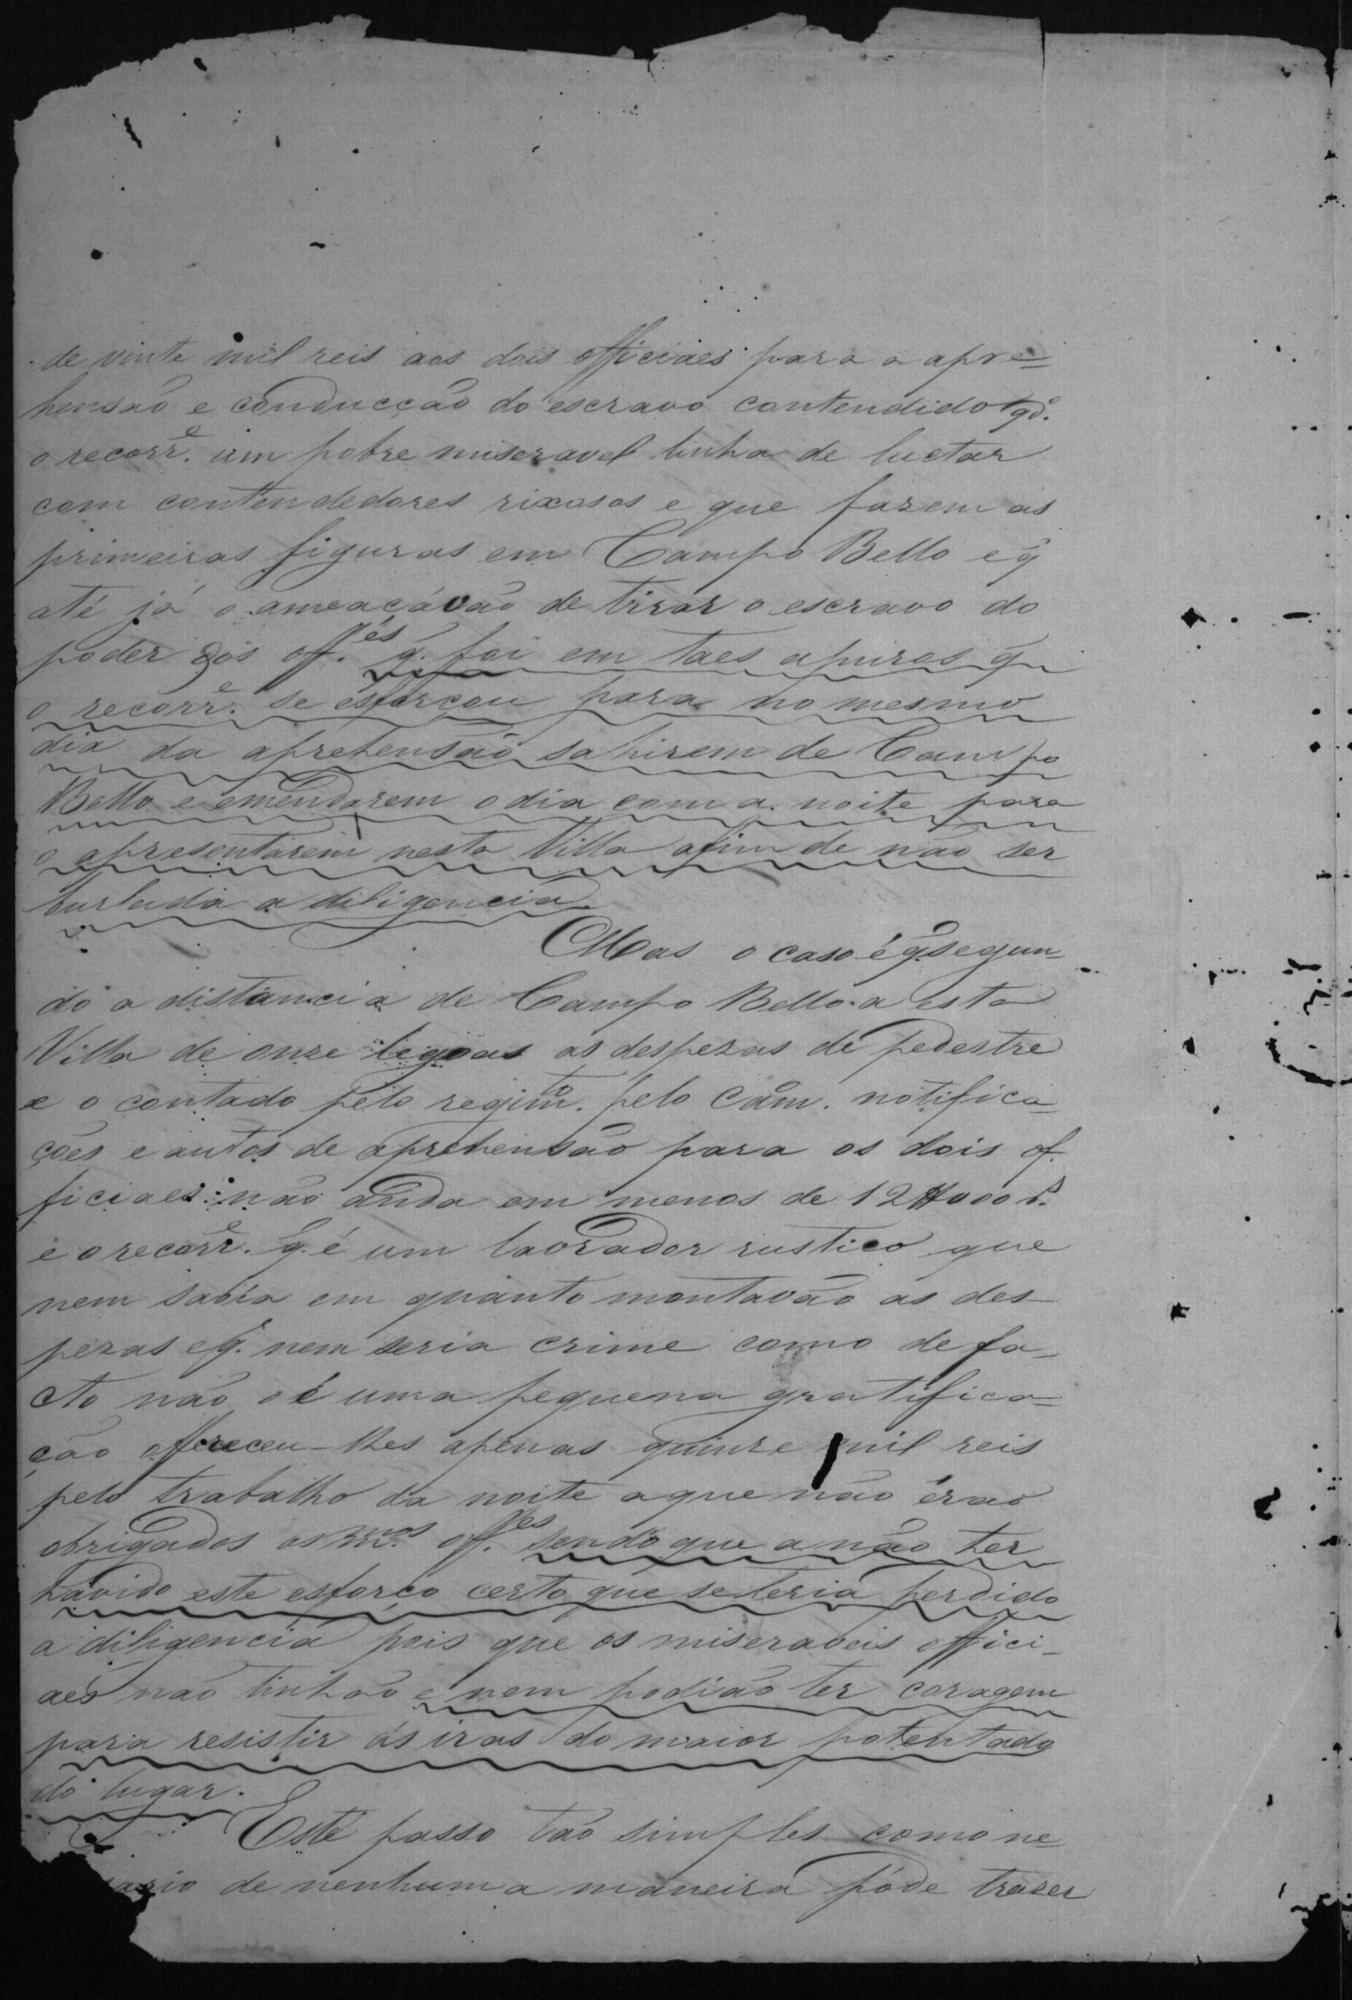 de vinte mil reis aos dois officiaes para a apre-
hensão e conducção do escravo contendido qdº
o recorrᵉ. um pobre miseravel tinha de luctar
com contendedores rixosos e que fazem as
primeiras figuras em Campo Bello e q̃
até já o ameaçávão de tirar o escravo do
poder dos off.ᵉˢ q. foi em taes apuros q̃
o recorrᵉ. se esforçou para no mesmo
dia da aprehensão sahirem de Campo
Bello e emendarem o dia com a noite para
o apresentarem nesta Villa afim de não ser
burlada a diligencia.
Mas o caso é q. segun-
do a distancia de Campo Bello a esta
Villa de onze legoas as despezas de pedestre
e o contado pelo regimᵗᵒ. pelo Cam. notifica-
ções e autos de aprehensão para os dois of-
ficiaes não anda em menos de 12$000 r.ˢ
e o recorrᵉ. q. é um lavrador rustico que
nem sabia em quanto montavão as des-
pezas e q. nem seria crime como de fa-
cto não o é uma pequena gratifica-
ção offereceu-lhes apenas quinze mil reis
pelo trabalho da noite a que não érão
obrigados os mᵐᵒˢ. off.ᵉˢ sendo que a não ter
havido este esforço certo que se teria perdido
a diligencia pois que os miseraveis offici-
aes não tinhão e nem podião ter coragem
para resistir ás iras do maior potentado
do lugar.
Este passo tão simples como ne-
sario de nenhuma maneira póde trazer